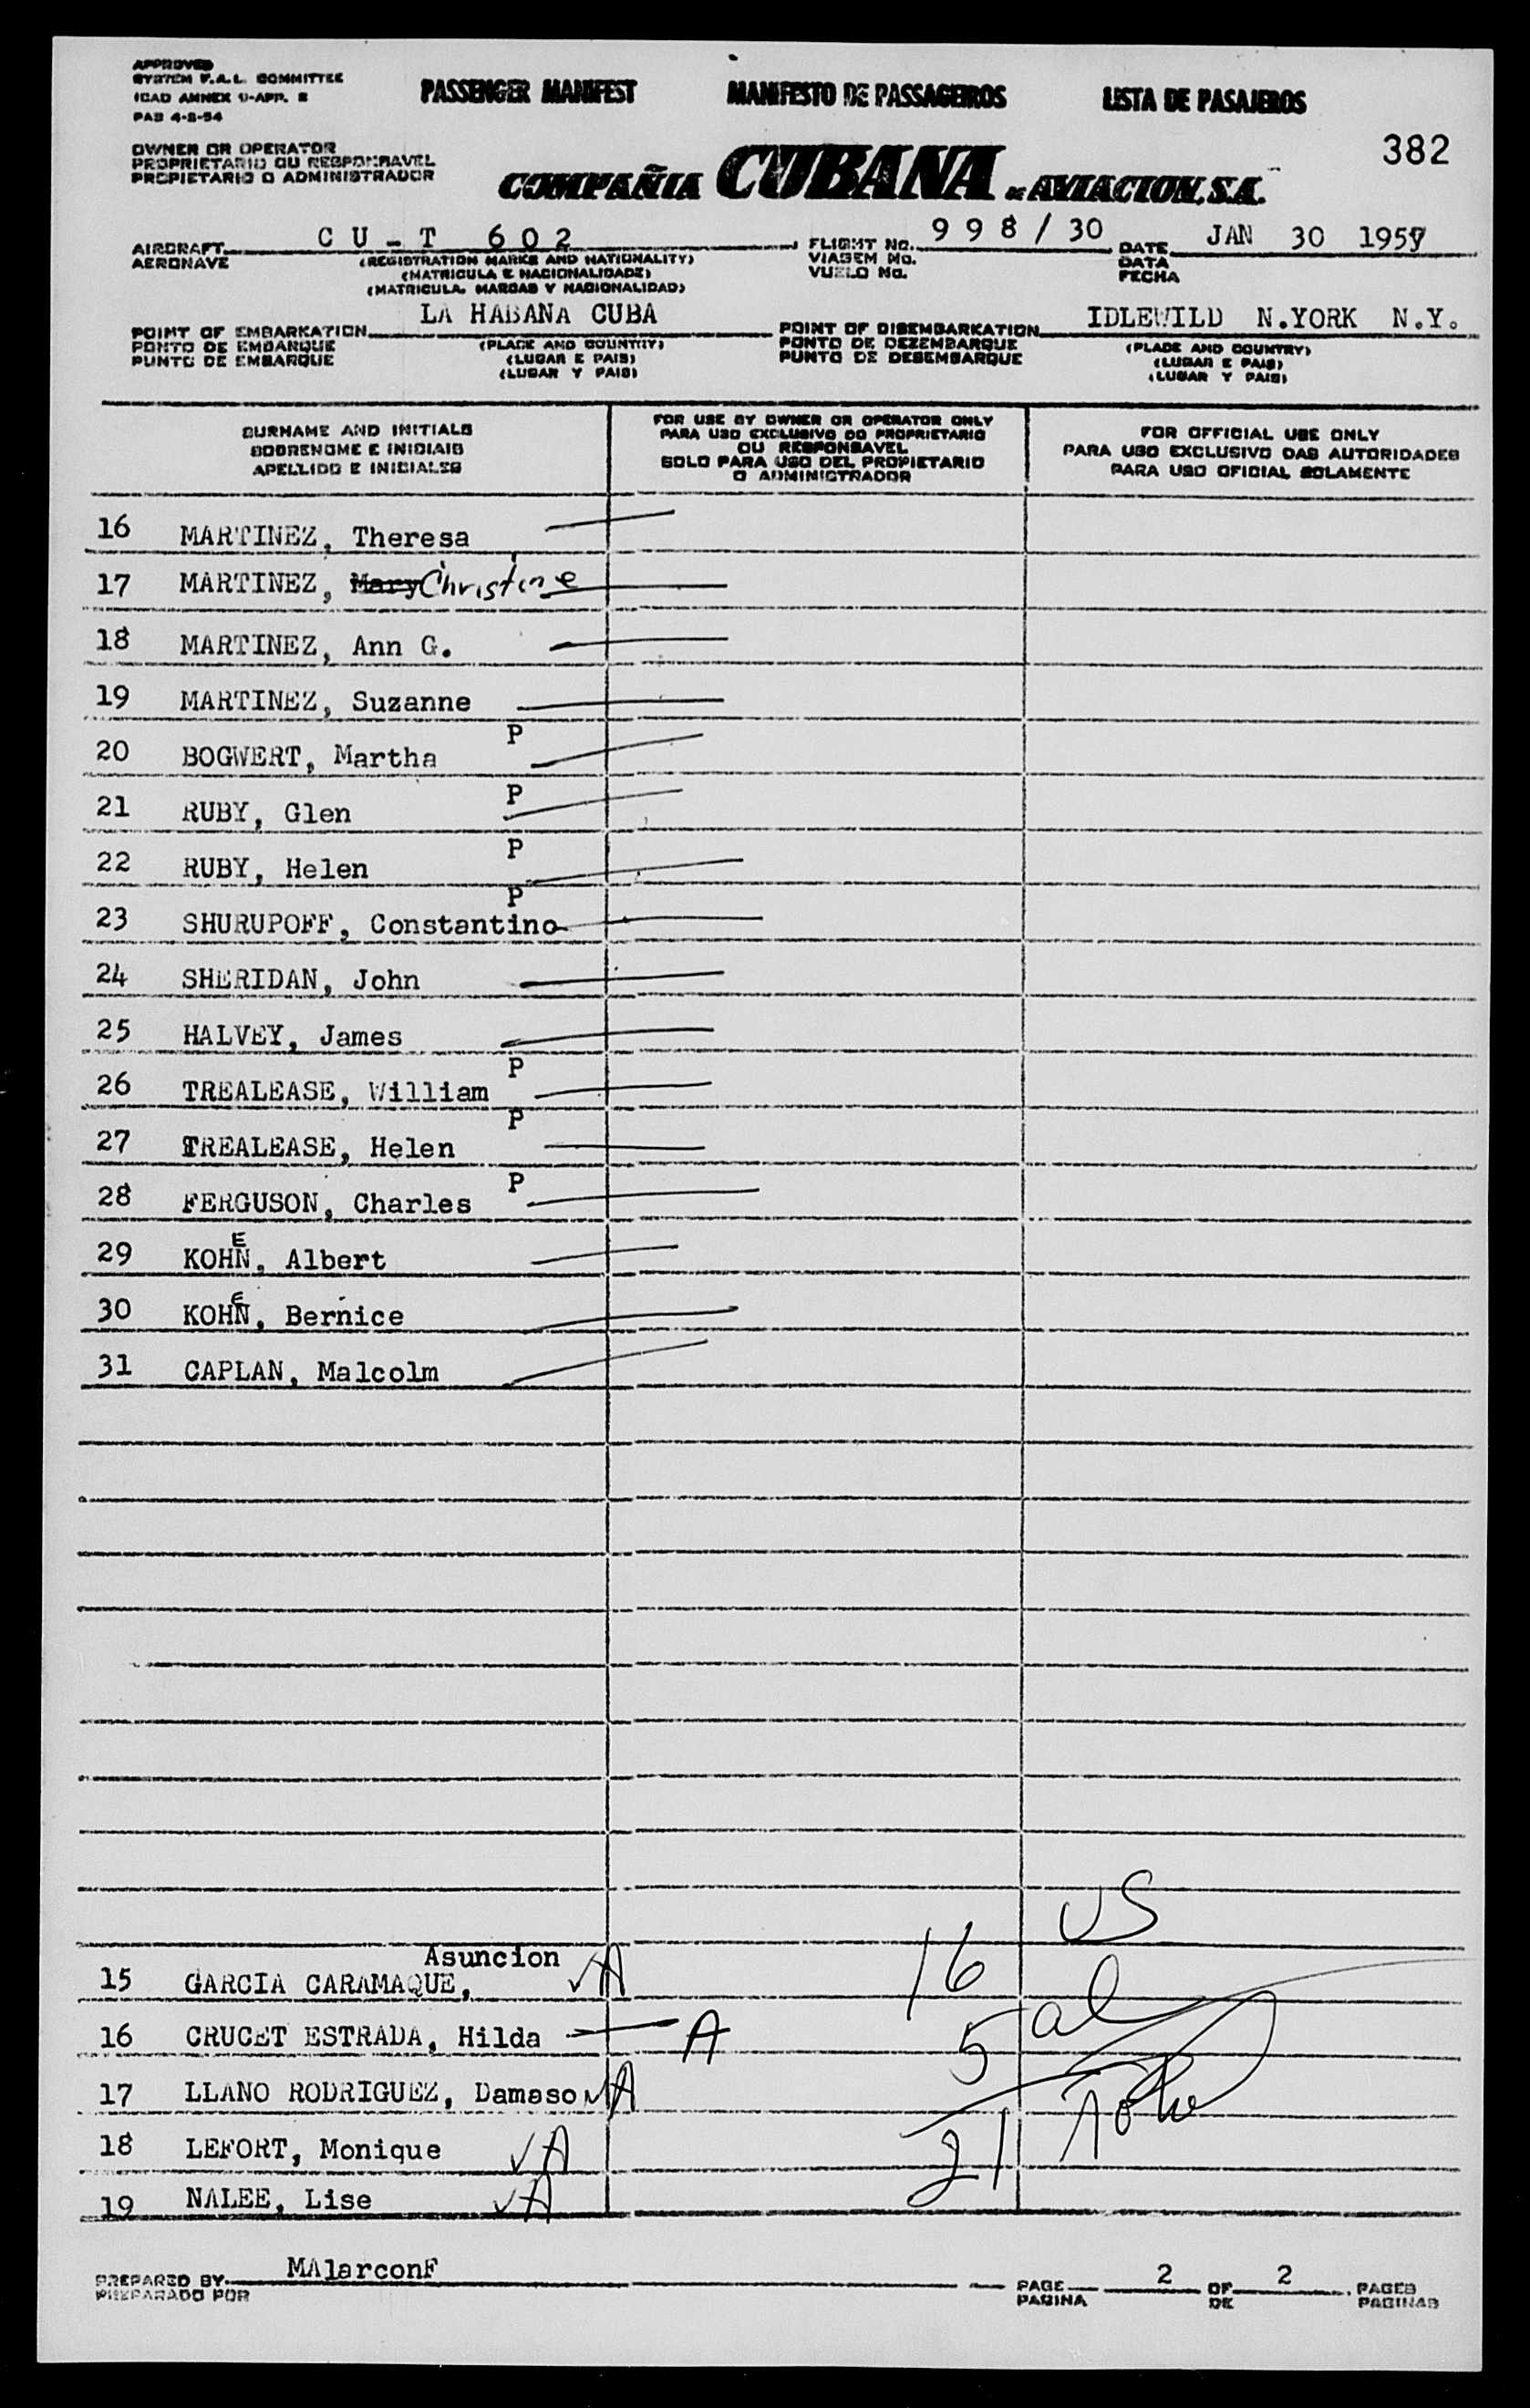 APPROVED
SYSTEM F.A.L. COMMITTEE
ICAO ANNEX 9-APP. 2
PAB 4-8-54
PASSENGER MANIFEST MANIFESTO DE PASSAGEIROS LISTA DE PASAJEROS
382
OWNER OR OPERATOR
PROPRIETARIO OU RESPONSAVEL
PROPIETARIO O ADMINISTRADOR
COMPAÑIA CUBANA DE AVIACION, S.A.
AIRCRAFT CU-T 602 FLIGHT No. 998/30 DATE JAN 30 1957
AERONAVE (REGISTRATION MARKS AND NATIONALITY) VIAGEM No. DATA
(MATRICULA E NACIONALIDADE) VUELO No. FECHA
(MATRICULA, MARCAS Y NACIONALIDAD)
POINT OF EMBARKATION LA HABANA CUBA POINT OF DISEMBARKATION IDLEWILD N.YORK N.Y.
PONTO DE EMBARQUE (PLACE AND COUNTRY) PONTO DE DEZEMBARQUE (PLACE AND COUNTRY)
PUNTO DE EMBARQUE (LUGAR E PAIS) PUNTO DE DESEMBARQUE (LUGAR E PAIS)
(LUGAR Y PAIS) (LUGAR Y PAIS)
SURNAME AND INITIALS
SOBRENOME E INICIAIS
APELLIDO E INICIALES
FOR USE BY OWNER OR OPERATOR ONLY
PARA USO EXCLUSIVO DO PROPRIETARIO
OU RESPONSAVEL
SOLO PARA USO DEL PROPIETARIO
O ADMINISTRADOR
FOR OFFICIAL USE ONLY
PARA USO EXCLUSIVO DAS AUTORIDADES
PARA USO OFICIAL SOLAMENTE
16 MARTINEZ, Theresa
17 MARTINEZ, Mary Christine
18 MARTINEZ, Ann G.
19 MARTINEZ, Suzanne
20 BOGWERT, Martha P
21 RUBY, Glen P
22 RUBY, Helen P
23 SHURUPOFF, Constantino P
24 SHERIDAN, John
25 HALVEY, James
26 TREALEASE, William P
27 TREALEASE, Helen P
28 FERGUSON, Charles P
29 KOHN, Albert E
30 KOHN, Bernice E
31 CAPLAN, Malcolm
15 GARCIA CARAMAQUE, Asuncion A 16 US
16 CRUCET ESTRADA, Hilda A 5 al
17 LLANO RODRIGUEZ, Damaso A
18 LEFORT, Monique A 21
19 NALEE, Lise A
PREPARED BY MAlarconF PAGE 2 OF 2 PAGES
PREPARADO POR PAGINA DE PAGINAS